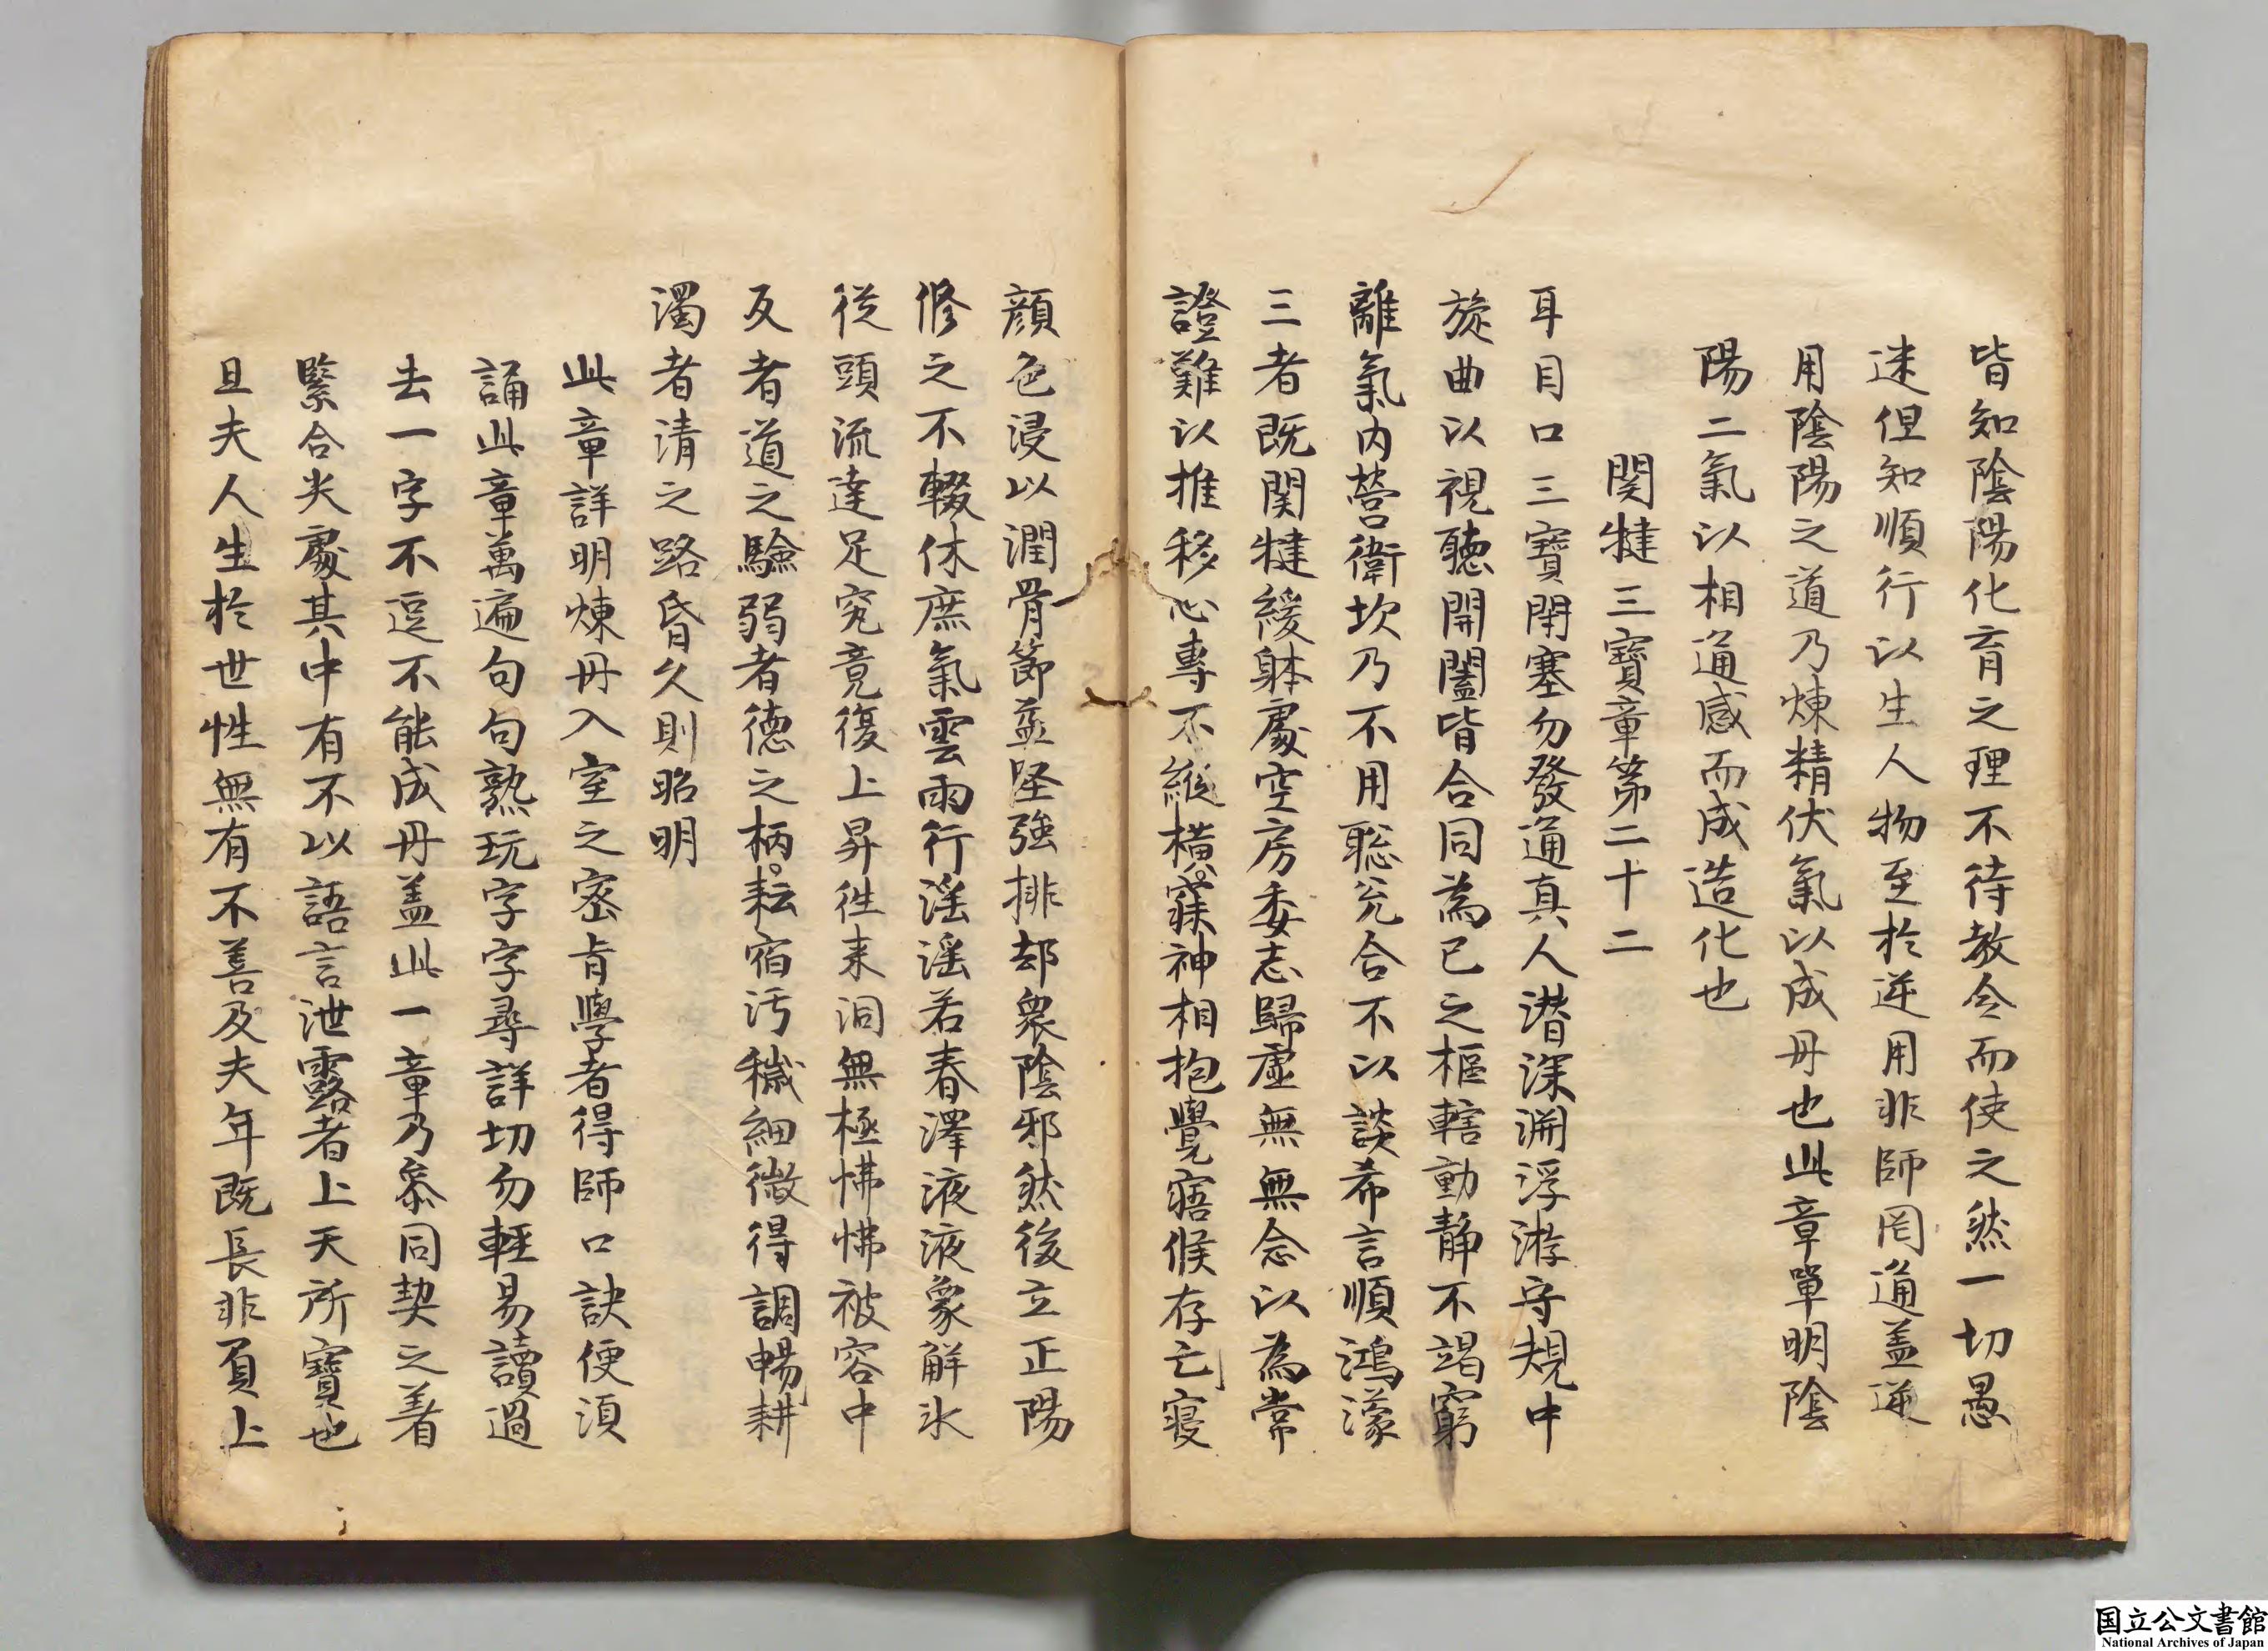 皆知陰陽化育之理不待教令而使之然一切愚
迷但知順行以生人物至於逆用非師罔通盖逆
用陰陽之道乃煉精伏氣以成丹也此章單明陰
陽二氣以相通感而成造化也
関揵三寶章第二十二
耳目口三寶閉塞勿發通真人潜深渊浮游守規中
旋曲以視聽開闔皆合同為己之樞轄動静不竭窮
離氣內營衛坎乃不用聡兊合不以談希言順鴻濛
三者既関揵緩躰處空房委志歸虚無無念以為常
證難以推移心專不縱橫寐神相抱覺寤候存亡寝
顔色浸以潤骨節益堅強排却衆陰邪然後立正陽
修之不輟休庶氣雲雨行滛滛若春澤液液象解氷
從頭流達足究竟復上昇徃来洞無極怫怫被容中
反者道之驗弱者德之柄耘宿汚穢細微得調暢耕
濁者清之路昏久則昭明
此章詳明煉丹入室之密肯學者得師口訣便須
誦此章萬遍句句熟玩字字尋詳切勿輕易讀過
去一字不逗不能成丹盖此一章乃叅同契之着
緊合尖處其中有不以語言泄露者上天所寶也
且夫人生於世性無有不善及夫年既長非頁上
国立公文書館
National Archives of Japan